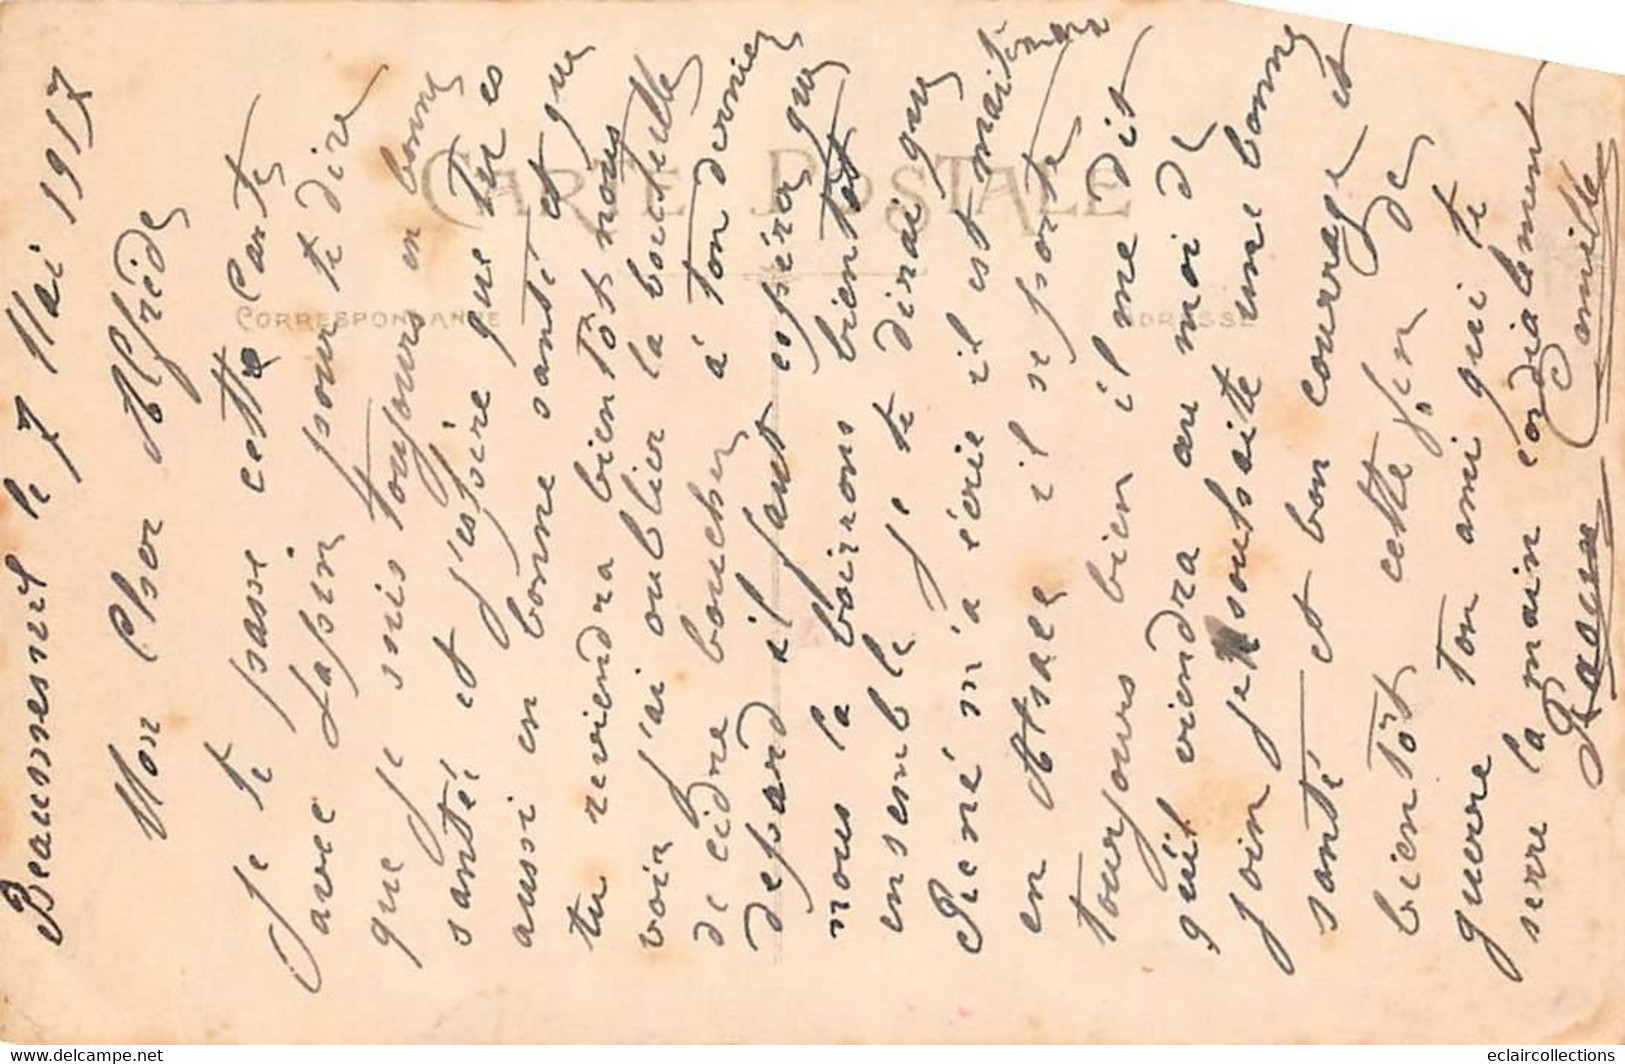 Beaumesnil le 7 Mai 1917
Mon Cher Alfrède
Je te passe cette carte
avec lapin pour te dire
que je suis toujours en bonne
santée et j'espère que tu es
aussi en bonne santé et que
tu reviendra bientôt nous
voir j'ai oublier la bouteille
de cidre boucher à ton dernier
depard il faut espérer que
nous la boirrons bientôt
ensemble je te dirai que
René m'a écrie il est maintenant
en Alsace il se porte
toujours bien il me dit
qu'il viendra au moi de
join je souhaite une bonne
santé et bon courrage et
bientôt cette fin de
guerre ton ami qui te
serre la main cordialement
Camille
CARTE POSTALE
CORRESPONDANCE
ADRESSE
eclaircollections